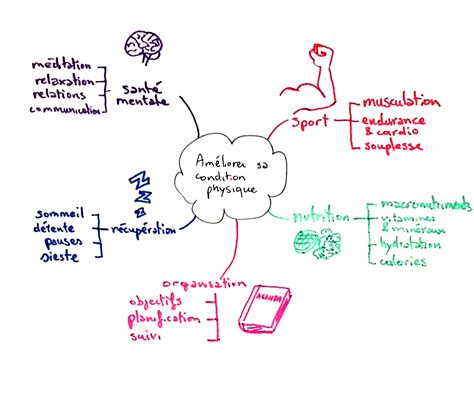 méditation
relaxation
relations
communication
santé
mentale
sport
musculation
endurance
& cardio
souplesse
Améliorer sa
condition
physique
sommeil
détente
pauses
sieste
récupération
nutrition
macronutriments
vitamines
& minéraux
hydratation
calories
organisation
objectifs
planification
suivi
AGENDA